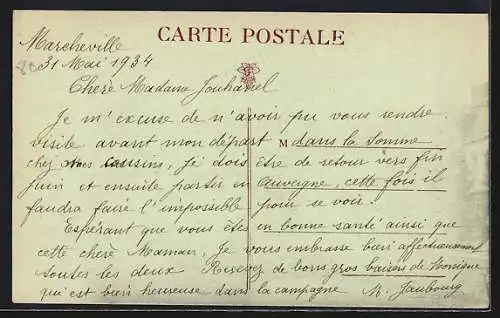 CARTE POSTALE
Marcheville
80
31 Mai 1934
Chère Madame Jouhanel
Je m'excuse de n'avoir pu vous rendre
visite avant mon départ M dans la Somme
chez mes cousins, je dois être de retour vers fin
Juin et ensuite partir en Auvergne, cette fois il
faudra faire l'impossible pour se voir.
Espérant que vous êtes en bonne santé ainsi que
cette chère Maman, je vous embrasse bien affectueusement
toutes les deux Recevez de bons gros baisers de Monique
qui est bien heureuse dans la campagne M. Jaubourg